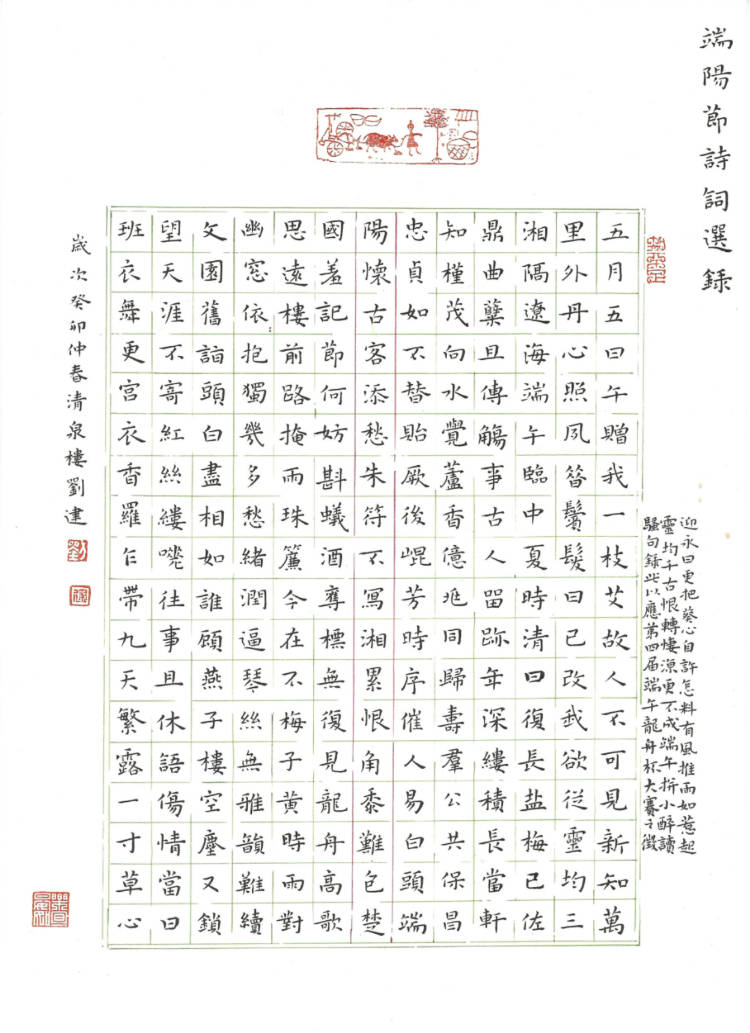 端陽節詩詞選録
五月五日午贈我一枝艾故人不可見新知萬
里外丹心照夙昔鬢髮日已改我欲從靈均三
湘隔遼海端午臨中夏時清日復長盐梅已佐
鼎曲糵且傳觴事古人留跡年深縷積長當軒
知槿茂向水覺蘆香億兆同歸壽羣公共保昌
忠貞如不替貽厥後崐芳時序催人易白頭端
陽懷古客添愁朱符不寫湘累恨角黍難包楚
國羞記節何妨斟蟻酒奪標無復見龍舟高歌
思遠樓前路掩雨珠簾今在不梅子黃時雨對
幽窓依抱獨幾多愁緒潤逼琴絲無雅韻難續
文園舊謌頭白盡相如誰顧燕子樓空塵又鎖
望天涯不寄紅絲縷嘆往事且休語傷情當日
班衣舞更宮衣香羅乍帶九天繁露一寸草心
迎永日更把葵心自許怎料有風推雨如惹起
靈均千古恨轉悽涼更不成端午拚小醉讀
騷句錄些以應第四届端午龍舟杯大賽之徵
歲次癸卯仲春清泉樓劉建
劉